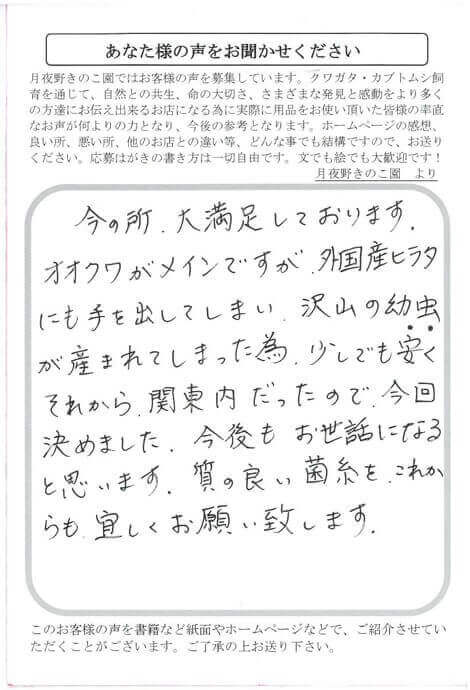 あなた様の声をお聞かせください
月夜野きのこ園ではお客様の声を募集しています。クワガタ・カブトムシ飼
育を通じて、自然との共生、命の大切さ、さまざまな発見と感動をより多く
の方達にお伝え出来るお店になる為に実際に用品をお使い頂いた皆様の率直
なお声が何よりの力となり、今後の参考となります。ホームページの感想、
良い所、悪い所、他のお店との違い等、どんな事でも結構ですので、お送り
ください。応募はがきの書き方は一切自由です。文でも絵でも大歓迎です！
月夜野きのこ園　より
今の所、大満足しております。
オオクワがメインですが、外国産ヒラタ
にも手を出してしまい、沢山の幼虫
が産まれてしまった為、少しでも安く
それから、関東内だったので、今回
決めました。今後もお世話になる
と思います。質の良い菌糸を、これか
らも、宜しくお願い致します。
このお客様の声を書籍など紙面やホームページなどで、ご紹介させてい
ただくことがございます。ご了承の上お送り下さい。